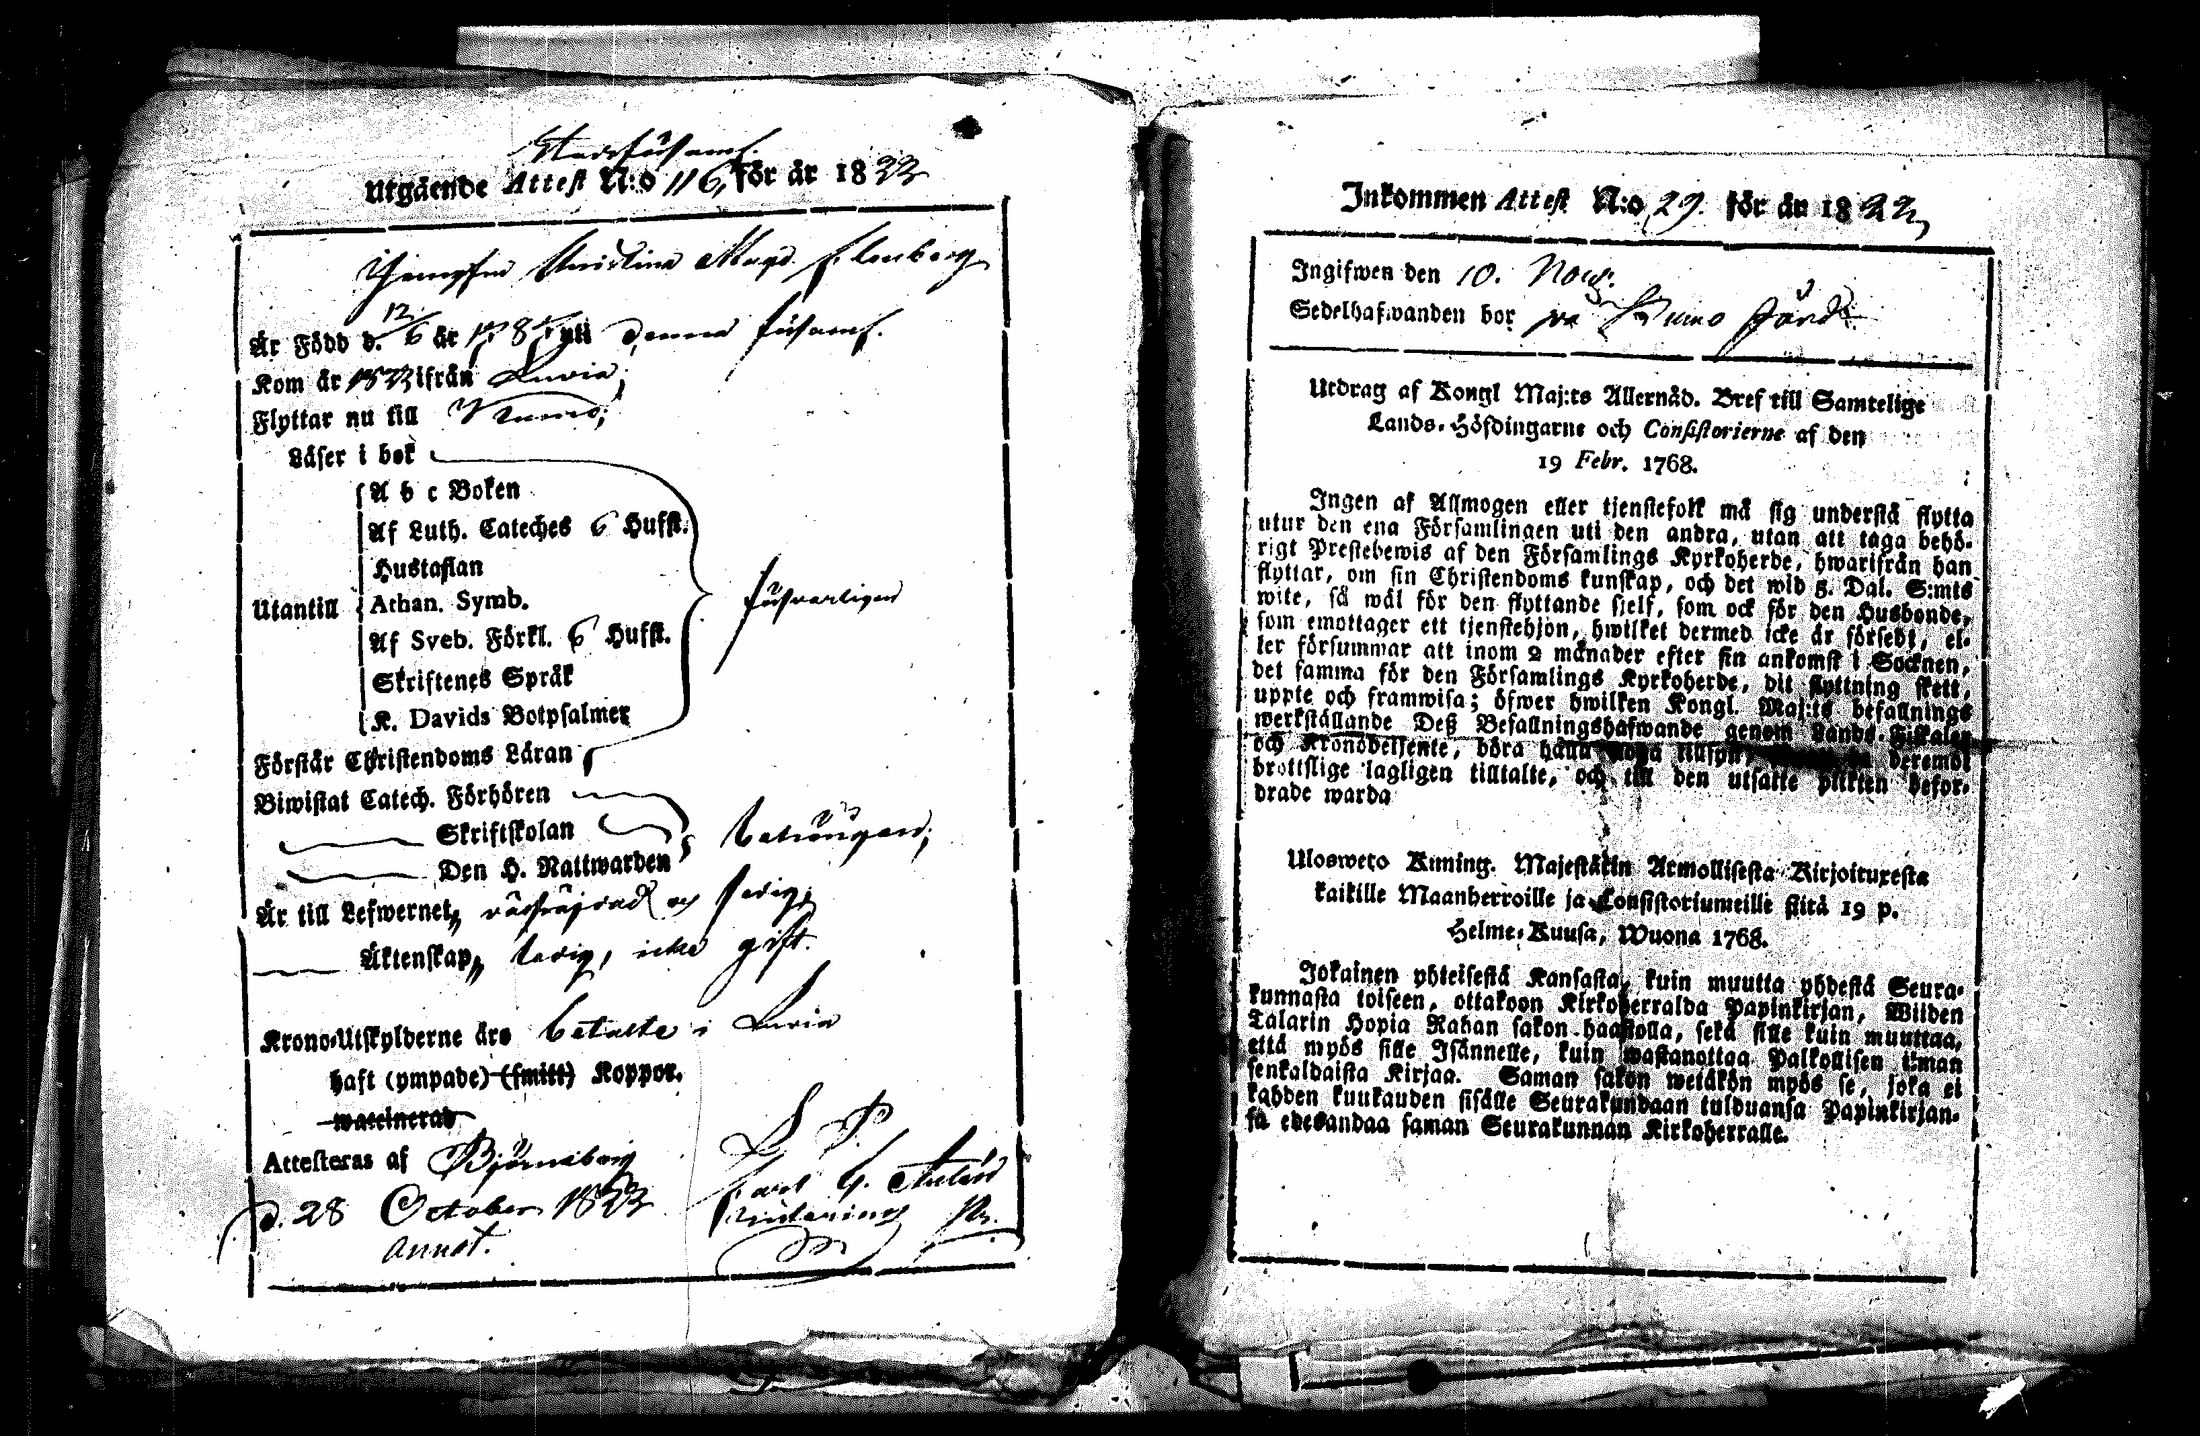 Utgående Attest N:o 116, för år 1822
Christina Magd.
Är Född d. 12/6 år uti denna
Kom år 1822 ifrån Luvia;
Flyttar nu till Kumo;
Läser i bok
A b c Boken
Af Luth. Cateches 6 Hufst.
Hustaflan
Utantill Athan. Symb.
Af Sveb. Förkl. 6 Hufst.
Skriftenes Språk
K. Davids Botpsalmer
försvarligen
Förstår Christendoms Läran
Biwistat Catech. Förhören
Skriftskolan
Den H. Nattwarden
behörigen;
Är till Lefwernet, och
Äktenskap, ledig, icke gift.
Krono-Utskylderne äro betalte i Luvia
haft (ympade) (smitt) Koppor.
waccinerad
Attesteras af Björneborg
d. 28 October 1822
annot.
Inkommen Attest N:o 29. för år 1822
Ingifwen den 10. Nov.
Sedelhafwanden bor på Kumo Gård
Utdrag af Kongl Maj:ts Allernåd. Bref till Samtelige
Lands-Höfdingarne och Consistorierne af den
19 Febr. 1768.
Ingen af Allmogen eller tjenstefolk må sig understå flytta
utur den ena Församlingen uti den andra, utan att taga behö-
rigt Prestebewis af den Församlings Kyrkoherde, hwarifrån han
flyttar, om sin Christendoms kunskap, och det wid 5. Dal. S:mts
wite, så wäl för den flyttande sjelf, som ock för den Husbonde,
som emottager ett tjenstehjon, hwilket dermed icke är försedt, el-
ler försummar att inom 2 månader efter sin ankomst i Socknen,
det samma för den Församlings Kyrkoherde, dit flyttning skett,
uppte och framwisa; öfwer hwilken Kongl. Maj:ts befallnings
werkställande Deß Befallningshafwande genom Lands-Fiskaler
och Kronobetjente, böra hålla noga tillsyn, deremot
brottslige lagligen tilltalte, och till den utsatte plikten befor-
drade warda
Ulosweto Kuning. Majestätin Armollisesta Kirjoituxesta
kaikille Maanherroille ja Consistoriumeille siitä 19 p.
Helme-Kuusa, Wuona 1768.
Jokainen yhteisestä Kansasta, kuin muutta yhdestä Seura-
kunnasta toiseen, ottakoon Kirkoherralda Papinkirjan, Wiiden
Talarin Hopia Rahan sakon haastolla, sekä sille kuin muuttaa,
että myös sille Isännelle, kuin wastanottaa Palkollisen ilman
senkaldaista Kirjaa. Saman sakon wetäkön myös se, joka ei
kahden kuukauden sisälle Seurakundaan tulduansa Papinkirjan-
sa edesandaa saman Seurakunnan Kirkoherralle.